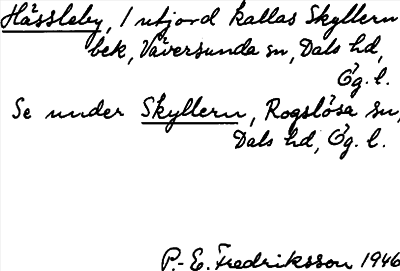 Hässleby, 1 utjord kallas Skyllern
bek, Väversunda sn, Dals hd,
Ög. l.
Se under Skyllern, Rogslösa sn,
Dals hd, Ög. l.
P.-E. Fredriksson 1946